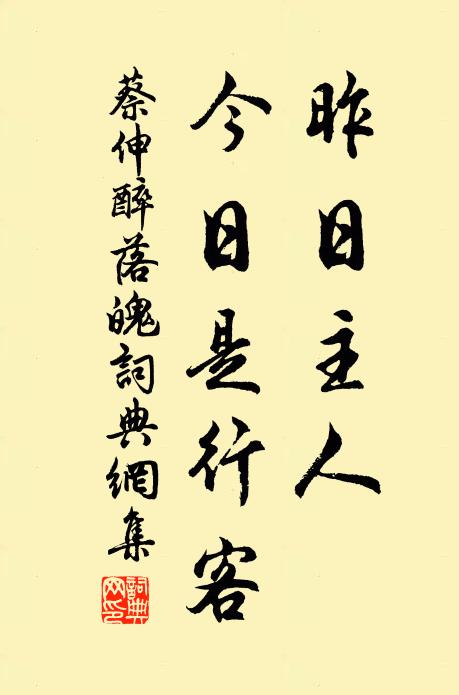 昨日主人
今日是行客
蔡伸醉落魄詞典網集
詞典網印